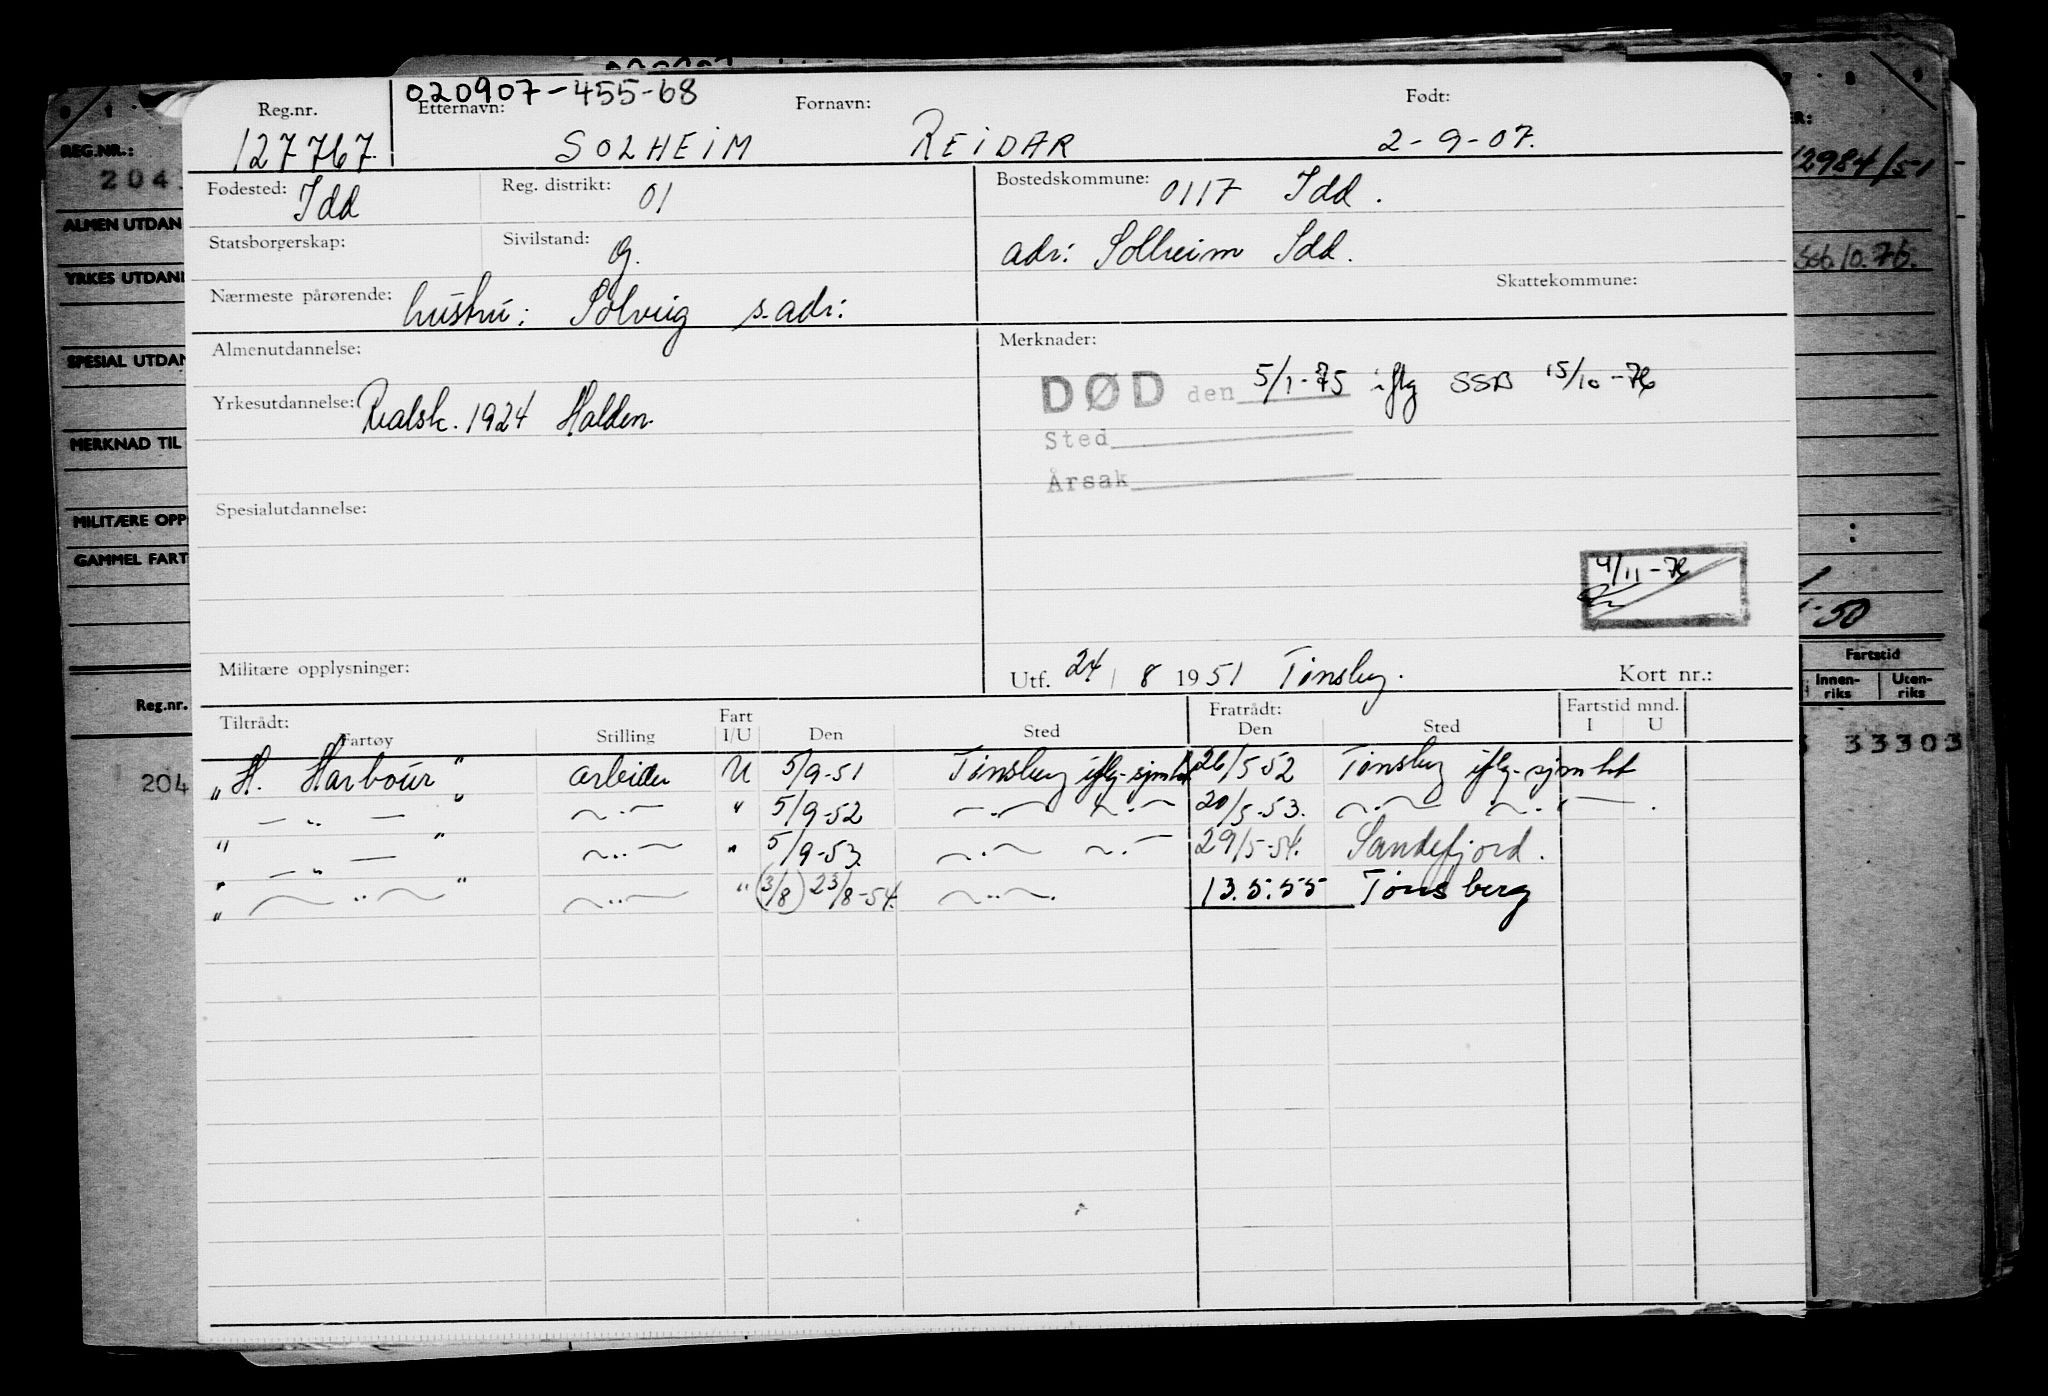 020907-455-68
Reg.nr. Etternavn: Fornavn: Født:
127767. SOLHEIM REIDAR 2-9-07.
Fødested: Idd Reg. distrikt: 01 Bostedskommune: 0117 Idd.
Statsborgerskap: Sivilstand: g. adr: Solheim Idd.
Skattekommune:
Nærmeste pårørende: hustru: Solveig s. adr:
Almenutdannelse: Merknader:
DØD den 5/1-75 iflg SSB 15/10-76
Yrkesutdannelse: Realsk. 1924 Halden.
Sted
Årsak
Spesialutdannelse:
4/11-76
Militære opplysninger: Utf. 24/8 1951 Tønsberg. Kort nr.:
Tiltrådt: Fart Fratrådt: Fartstid mnd.
Fartøy Stilling I/U Den Sted Den Sted I U
"H. Harbour" arbeider U 5/9-51 Tønsberg iflg. sjømht 26/5-52 Tønsberg iflg. sjømht
" — " — " —..— " 5/9-52 —.— —.— 20/5-53. —.— —.—
" — " — " —..— " 5/9-53. —.— —.— 29/5-54. Sandefjord.
" —..— " —..— " (3/8) 23/8-54. —..—. 13.5.55 Tønsberg
REG.NR.:
204
ALMEN UTDAN
YRKES UTDAN
SPESIAL UTDAN
MERKNAD TIL
MILITÆRE OPP
GAMMEL FART
Reg.nr.
204
12984/51
10.76.
-50
Fartstid
Innen-riks Uten-riks
33303